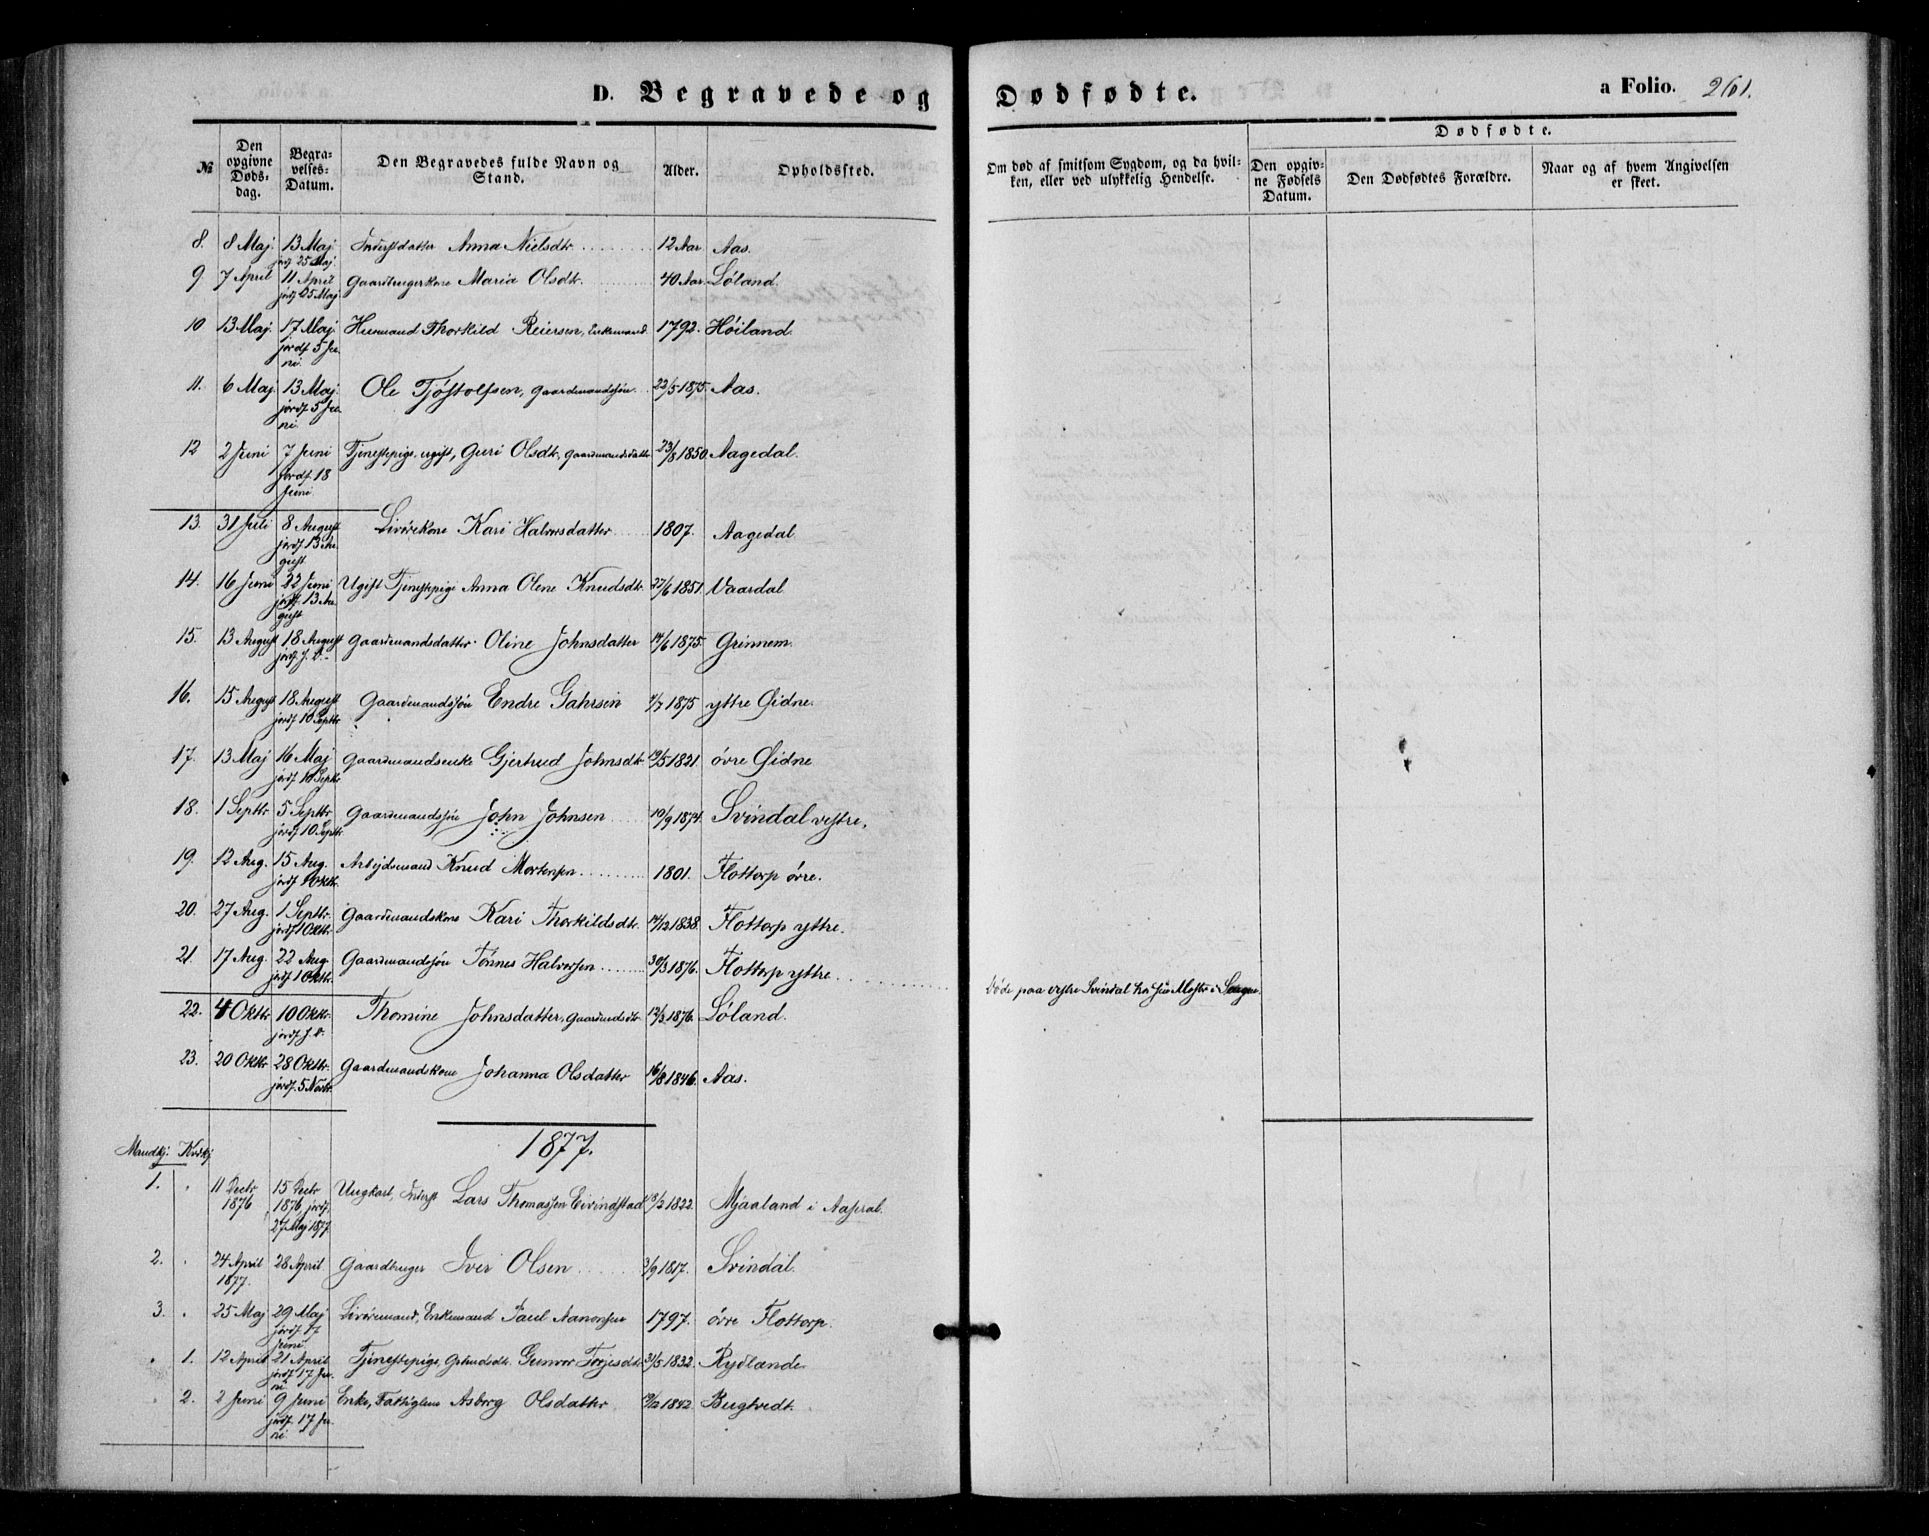 D. Begravede og Dødfødte. a Folio. 261.
Dødfødte.
№ Den opgivne Dødsdag. Begravelses-Datum. Den Begravedes fulde Navn og Stand. Alder. Opholdssted. Om død af smitsom Sygdom, og da hvilken, eller ved ulykkelig Hendelse. Den opgivne Fødsels Datum. Den Dødfødtes Forældre. Naar og af hvem Angivelsen er skeet.
8. 8 Maj. 13 Maj jordf 25 Maj. Inderstdatter Anna Nielsdtr. 12 Aar Aas.
9. 7 April 11 April jordf 25 Maj Gaardbrugerkone Maria Olsdtr. 40 Aar. Løland.
10 13 Maj. 17 Maj. jordf 5 Juni. Huusmand Thorkild Reiersen, Enkemand. 1792. Høiland.
11. 6 Maj. 13 Maj. jordf 5 Juni. Ole Tjøstolfsen, Gaardmandssøn 22/5 1875. Aas.
12 2 Juni 7 Juni jordf. 18 Juni Tjenestepige, ugift, Guri Olsdtr, Gaardmandsdatter 23/8 1850. Aagedal.
13. 31 Juli 8 August jordf 13 August. Livørekone Kari Halvorsdatter 1807. Aagedal
14. 16 Juni 22 Juni jordf. 13 August Ugift Tjenestepige Anna Olene Knudsdtr. 27/6 1851. Vaardal
15. 13 August 18 August jordf. s. D. Gaardmandsdatter Oline Johnsdatter 14/6 1875. Grinnem.
16. 15 August 18 August jordf 10 Septbr Gaardmandssøn Endre Gahrsen 4/7 1875 yttre Øidne.
17. 13 Maj 16 Maj jordf. 10 Septbr Gaardmandsenke Gjertrud Johnsdtr. 19/5 1821. øvre Øidne
18. 1 Septbr 5 Septbr jordf. 10 Septbr. Gaardmandssøn John Johnsen 10/9 1874. Svindal vestre.
19. 12 Aug. 15 Aug. jordf. 1 Oktbr. Arbejdsmand Knud Mortensen 1801. Flottorp øvre.
20. 27 Aug. 1 Septbr. jordf. 1 Oktbr. Gaardmandskone Kari Thorkildsdtr. 14/12 1838. Flottorp yttre.
21. 17 Aug. 22 Aug. jordf 1 Oktbr. Gaardmandssøn Tønnes Halvorsen 30/3 1876. Flottorp yttre. Døde paa vestre Svindal hos sin Moster
22. 4 Oktbr 10 Oktbr. jordf. s. D. Thomine Johnsdatter, Gaardmdsdtr. 12/3 1876. Løland.
23. 20 Oktbr. 28 Oktbr. jordf. 5 Novbr. Gaardmandskone Johanna Olsdatter 16/8 1846. Aas.
1877.
Mandkj. Kvdkj
1. 11 Decbr 1876 15 Decbr 1876, jordf. 27 Maj 1877. Ungkarl, Inderst Lars Thomassen Eivindstad 18/2 1822. Mjaaland i Aaseral.
2. 24 April 1877. 28 April. Gaardbruger Iver Olsen 3/9 1817. Svindal.
3. 25 Maj 29 Maj jordf. 17 Juni. Livøremand, Enkemand Paul Aanonsen 1797. øvre Flottorp.
1. 12 April 21 April jordf. 17 Juni Tjenestepige, Gunvor Torjesdtr. 31/5 1832. Rydlande.
2. 2 Juni 9 Juni jordf. 17 Juni. Enke, Fattiglem Asborg Olsdatter 12/12 1842. Bugtvedt.